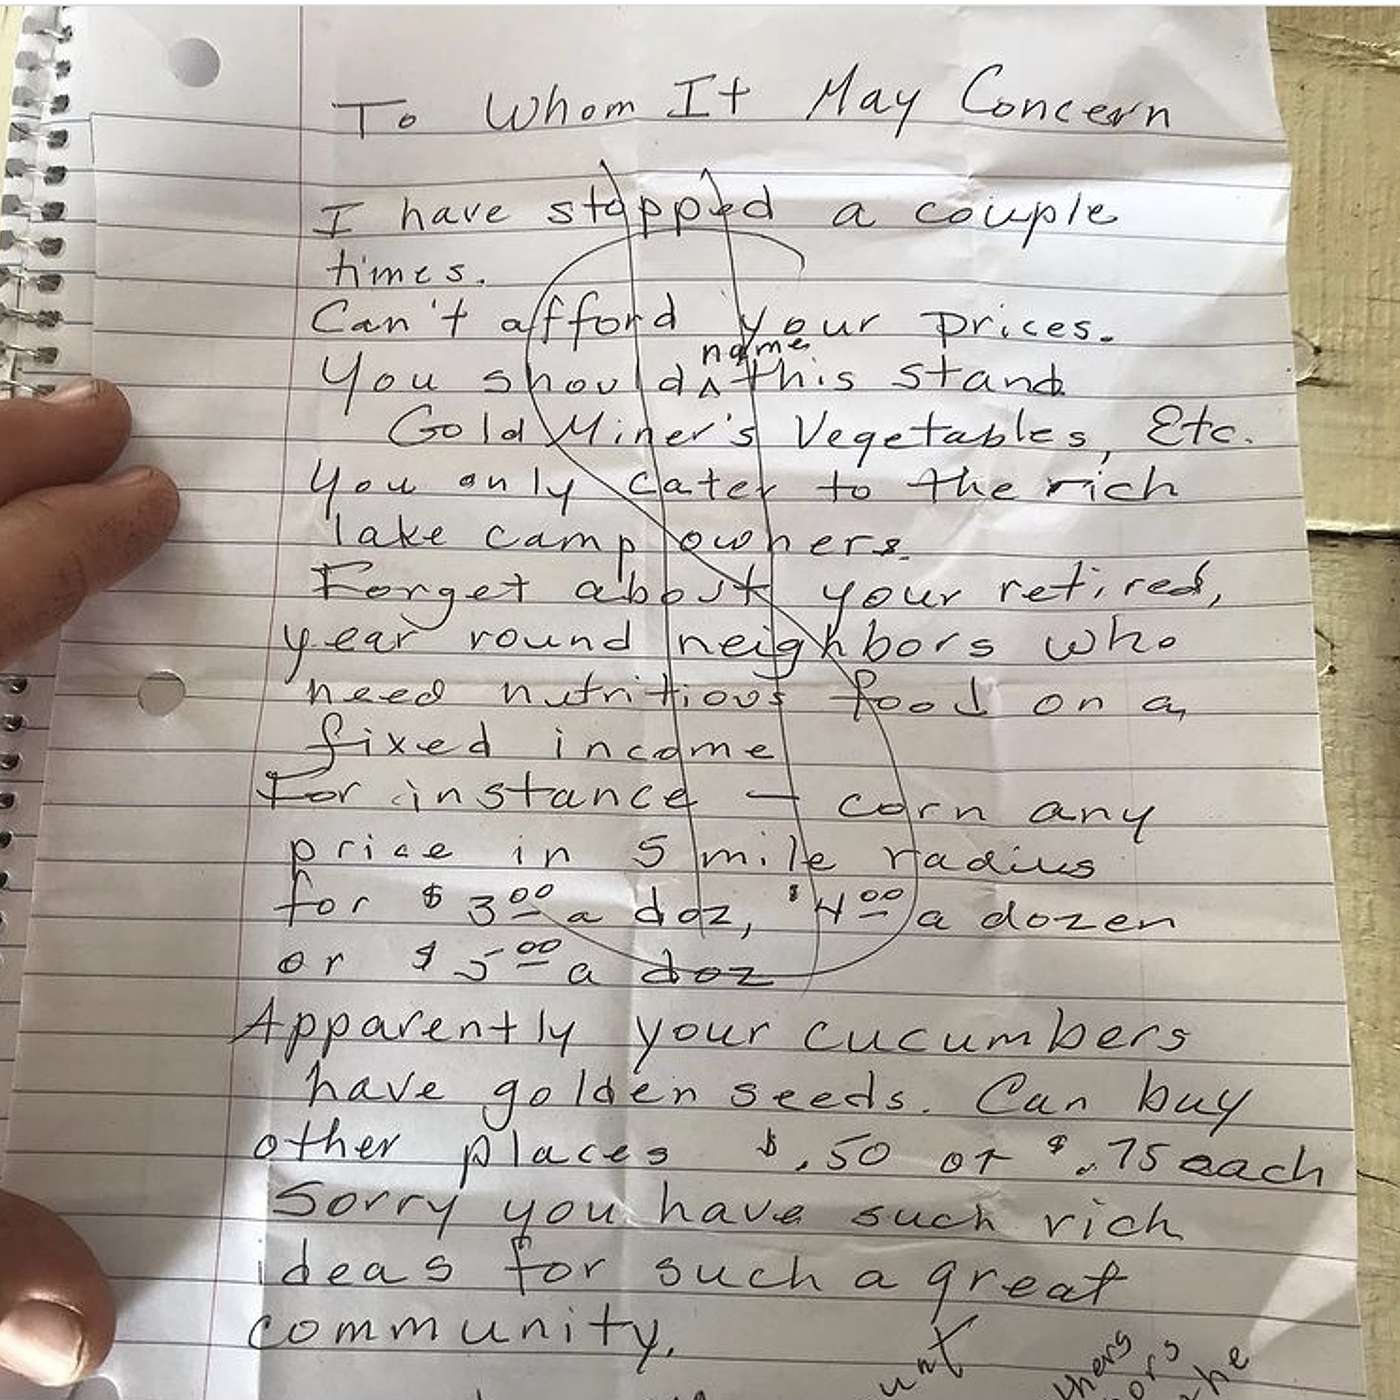 To Whom It May Concern
I have stopped a couple
times.
Can't afford your prices.
You should ^ name this stand
Gold Miner's Vegetables, Etc.
You only cater to the rich
lake camp owners.
Forget about your retired,
year round neighbors who
need nutritious food on a
fixed income
For instance – corn any
price in 5 mile radius
for $3.00 a doz, $4.00 a dozen
or $5.00 a doz
Apparently your cucumbers
have golden seeds. Can buy
other places $.50 or $.75 each
Sorry you have such rich
ideas for such a great
community.